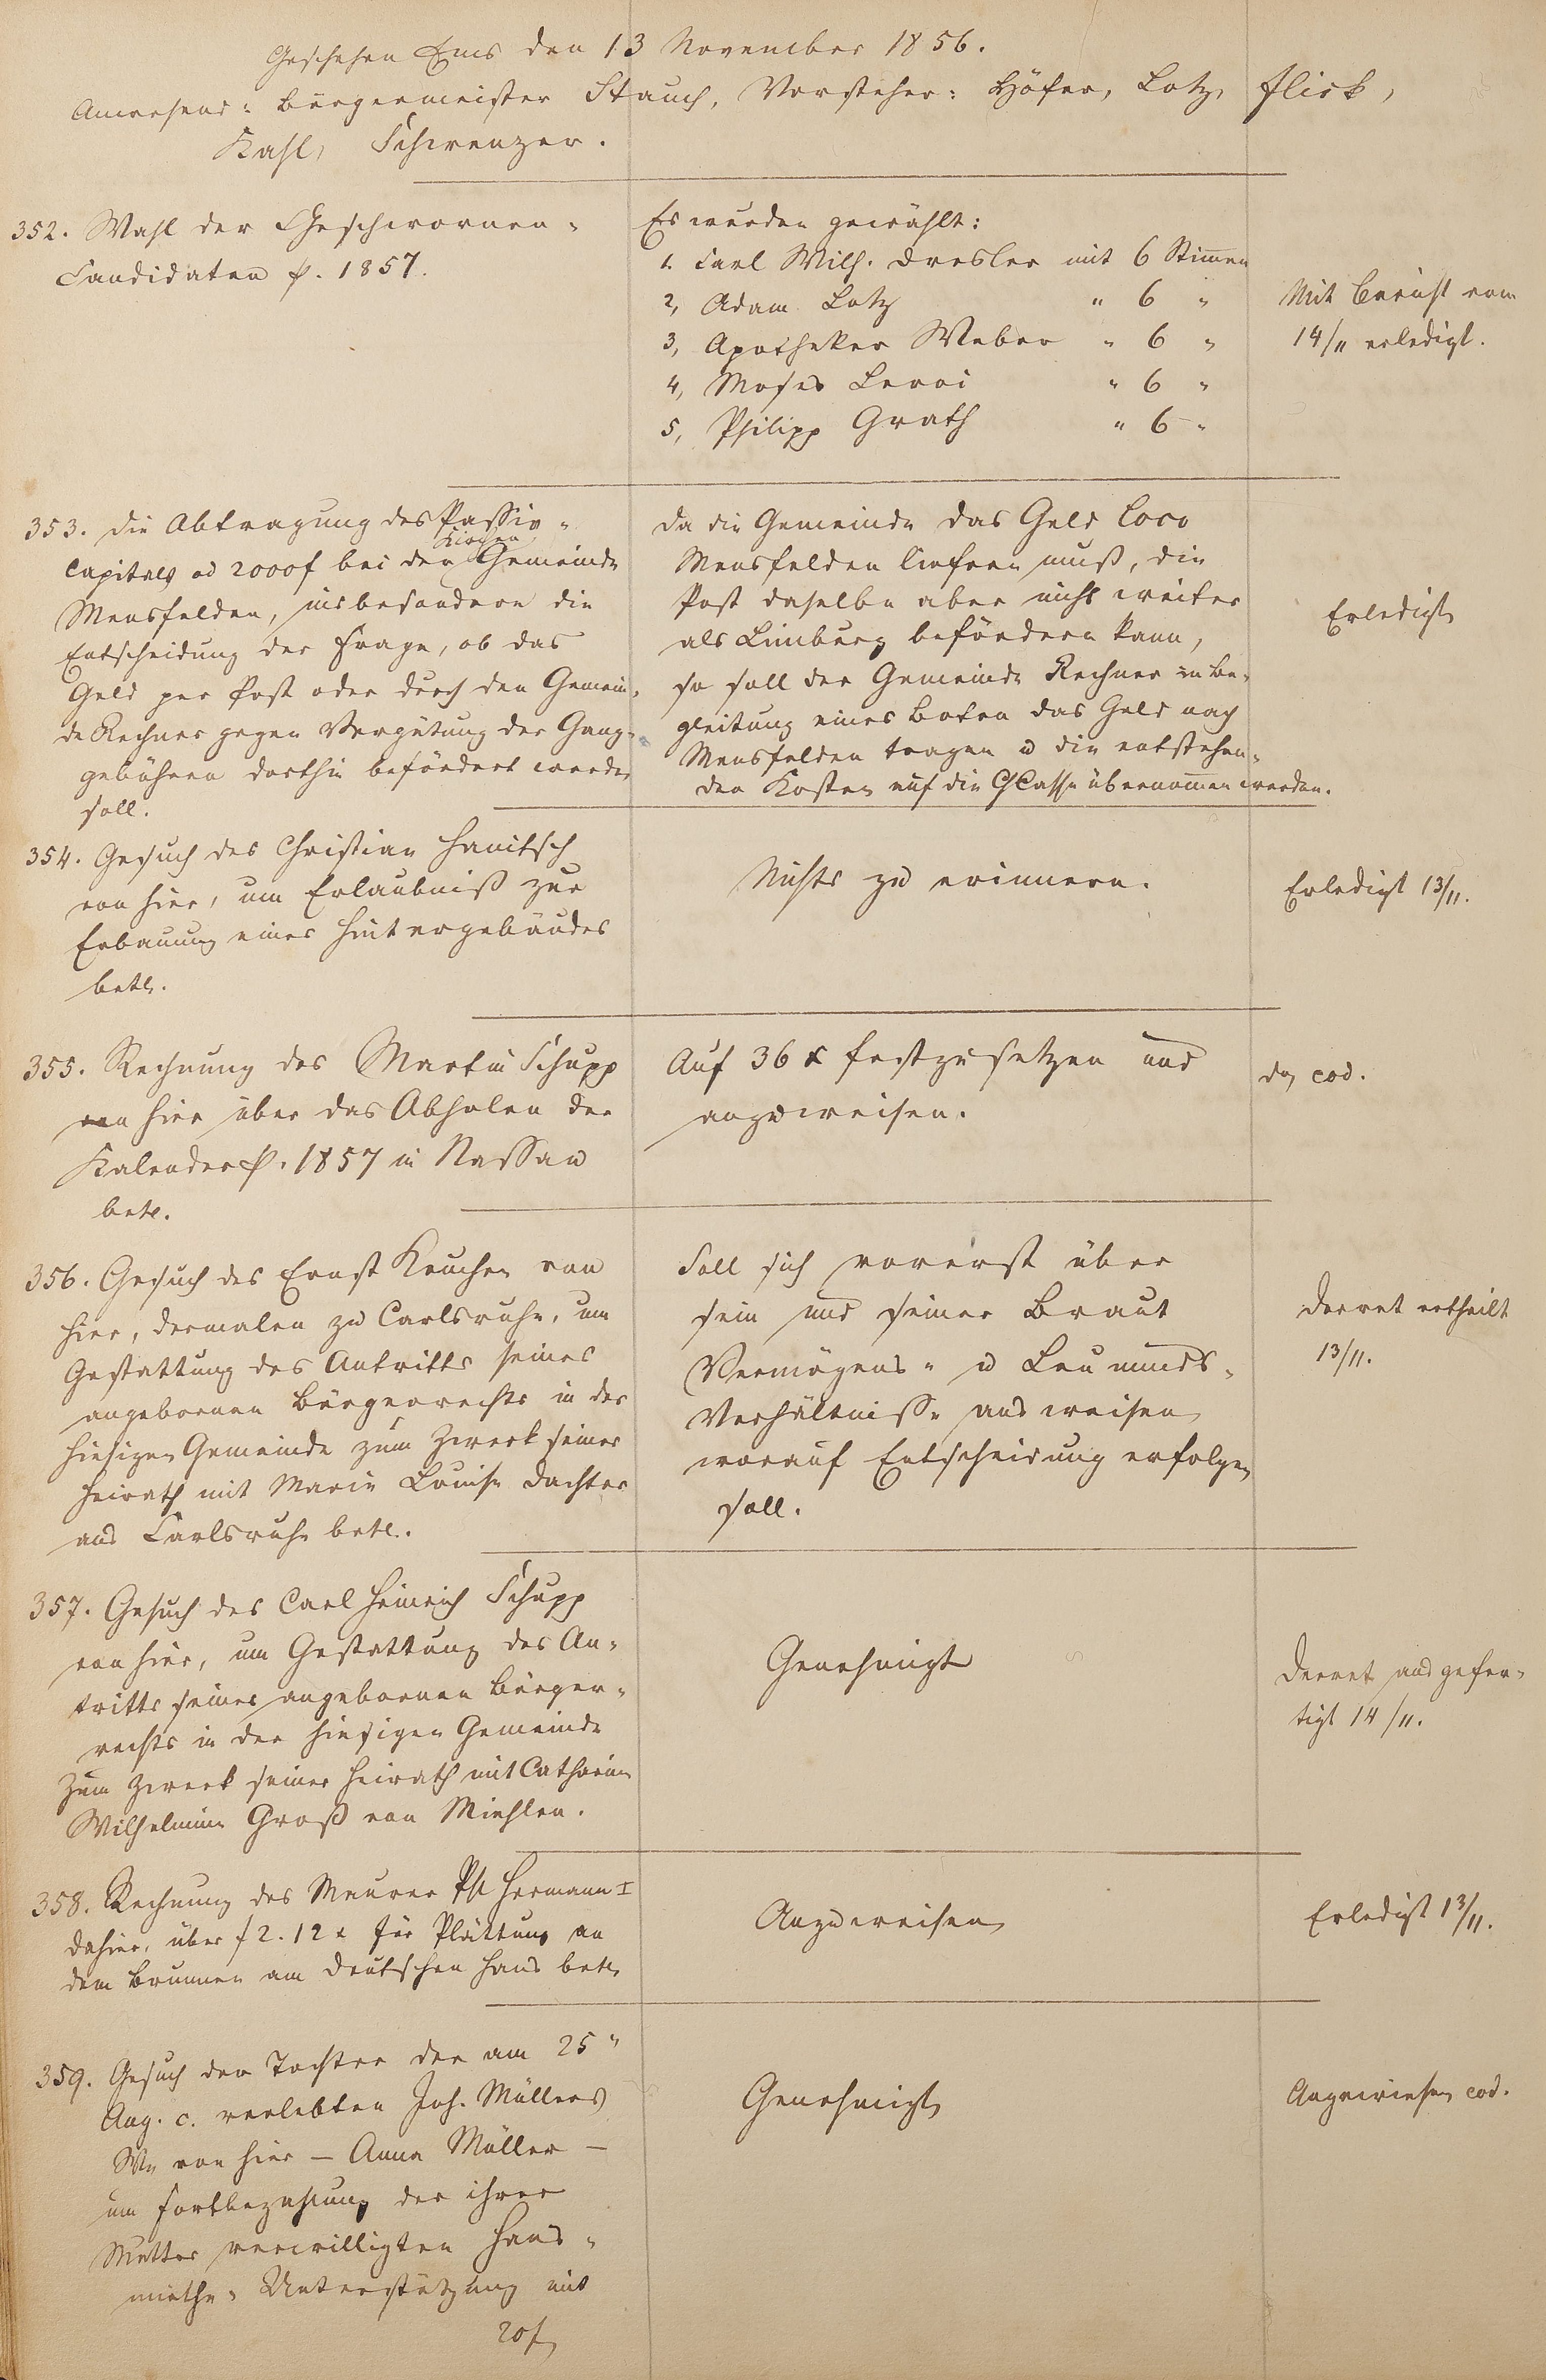 Geschehen Ems den 13 November 1856.
Anwesend: Bürgermeister Stauch, Vorsteher: Höfer, Lotz, Flick,
Kahl, Schwenzer.
352. Wahl der Geschwornen-
Candidaten p. 1857.
Es wurden gewählt:
1. Carl Wilh. Dresler mit 6 Stimen
2, Adam Lotz " 6 "
3, Apotheker Weber " 6 "
4, Moses Levoi " 6 "
5, Philipp Grath " 6 "
Mit Bericht vom
14/11 erledigt.
353. Die Abtragung des Passiv-
Capitals ad 2000f bei der Kirchen Gemeinde
Mensfelden, insbesondere die
Entscheidung der Frage, ob das
Geld per Post oder durch den Gemein-
de Rechner gegen Vergütung der Gang-
gebühren dorthin befördert werden
soll.
Da die Gemeinde das Geld loco
Mensfelden liefern muß, die
Post daselbe aber nicht weiter
als Limburg befördern kann,
so soll der Gemeinde Rechner in Be-
gleitung eines Boten das Geld nach
Mensfelden tragen u die entstehen-
den Kosten auf die GCasse übernomen werden.
Erledigt
354. Gesuch des Christian Hanitsch
von hier, um Erlaubniß zur
Erbauung eines Hintergebäudes
betr.
Nichts zu erinnern.
Erledigt 13/11.
355. Rechnung des Martin Schupp
von hier über das Abholen der
Kalender p. 1857 in Nassau
betr.
Auf 36 x festzusetzen und
anzuweisen.
do eod.
356. Gesuch des Ernst Kauchen von
hier, dermalen zu Carlsruhe, um
Gestattung des Antritts seines
angebornen Bürgerrechts in der
hiesigen Gemeinde zum Zweck seiner
Heirath mit Marie Louise Dachter
aus Carlsruhe betr.
Soll sich vorerst über
sein und seiner Braut
Vermögens- u Leumunds-
Verhältnisse ausweisen
worauf Entscheidung erfolgen
soll.
Decret ertheilt
13/11.
357. Gesuch des Carl Heinrich Schupp
von hier, um Gestattung des An-
tritts seines angebornen Bürger-
rechts in der hiesigen Gemeinde
zum Zweck seiner Heirath mit Catharine
Wilhelmine Groß von Miehlen.
Genehmigt
Decret ausgefer-
tigt 14/11.
358. Rechnung des Maurer Ph Hermann I
dahier, über f 2. 12 x für Plättung an
dem Brunnen am deutschen Haus betr
Anzuweisen
Erledigt 13/11.
359. Gesuch der Tochter der am 25"
Aug. c. verlebten Joh. Müllers
We von hier – Anna Müller –
um Fortbezahlung der ihrer
Mutter verwilligten Haus-
miethe-Unterstützung mit
20f
Genehmigt
Angewiesen eod.